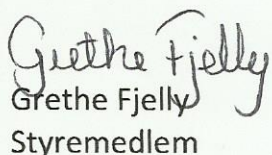 Grethe Fjelly
Grethe Fjelly
Styremedlem